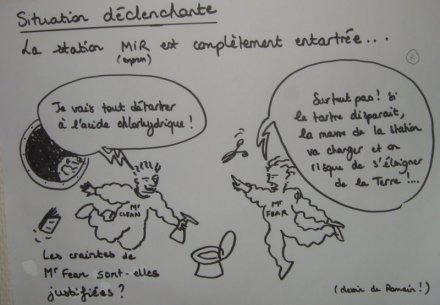 Situation déclenchante
La station MiR est complètement entartrée...
Je vais tout détartrer
à l'acide chlorhydrique !
Surtout pas ! Si
le tartre disparait,
la masse de la station
va changer et on
risque de s'éloigner
de la Terre !...
Mr
CLEAN
Mr
FEAR
Les craintes de
Mr Fear sont-elles
justifiées ?
(dessin de Romain !)